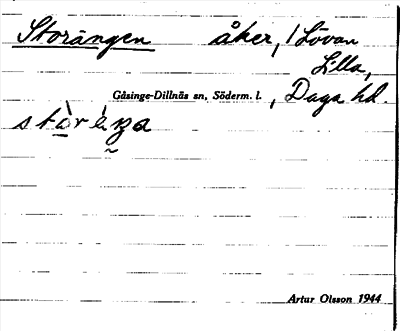 Storängen åker, / Lövan
Lilla,
Gåsinge-Dillnäs sn, Söderm. l., Daga hd.
Artur Olsson 1944